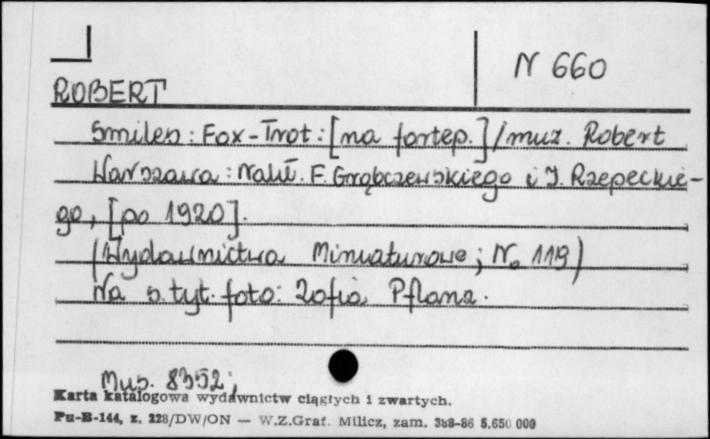 N 660
ROBERT
Smiles : Fox-Trot : [na fortep.] / muz. Robert
Warszawa : Nakł. F. Grąbczewskiego i J. Rzepeckie-
go, [po 1920].
(Wydawnictwa Miniaturowe ; No 119)
Na s. tyt. foto: Zofia Pflanz.
Mus. 8352 ;
Karta katalogowa wydawnictw ciągłych i zwartych.
Pu-B-144, z. 228/DW/ON — W.Z.Graf. Milicz, zam. 388-86 5.650 000